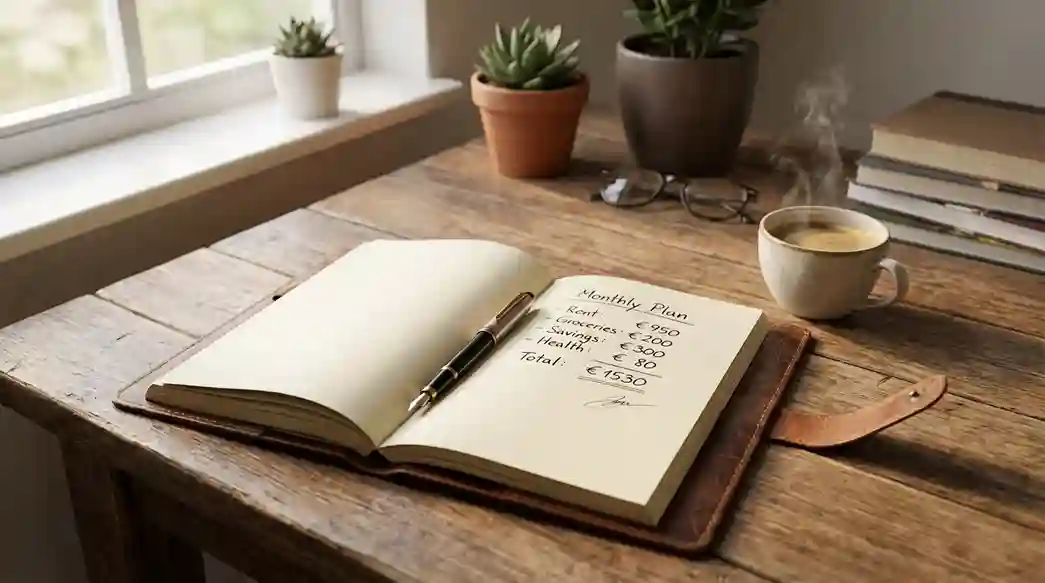 Monthly Plan
- Rent € 950
- Groceries: € 200
- Savings: € 300
- Health: € 80
Total: € 1530